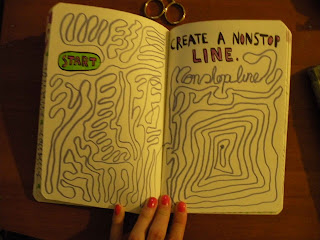 START
CREATE A NONSTOP
LINE.
Nonstop line